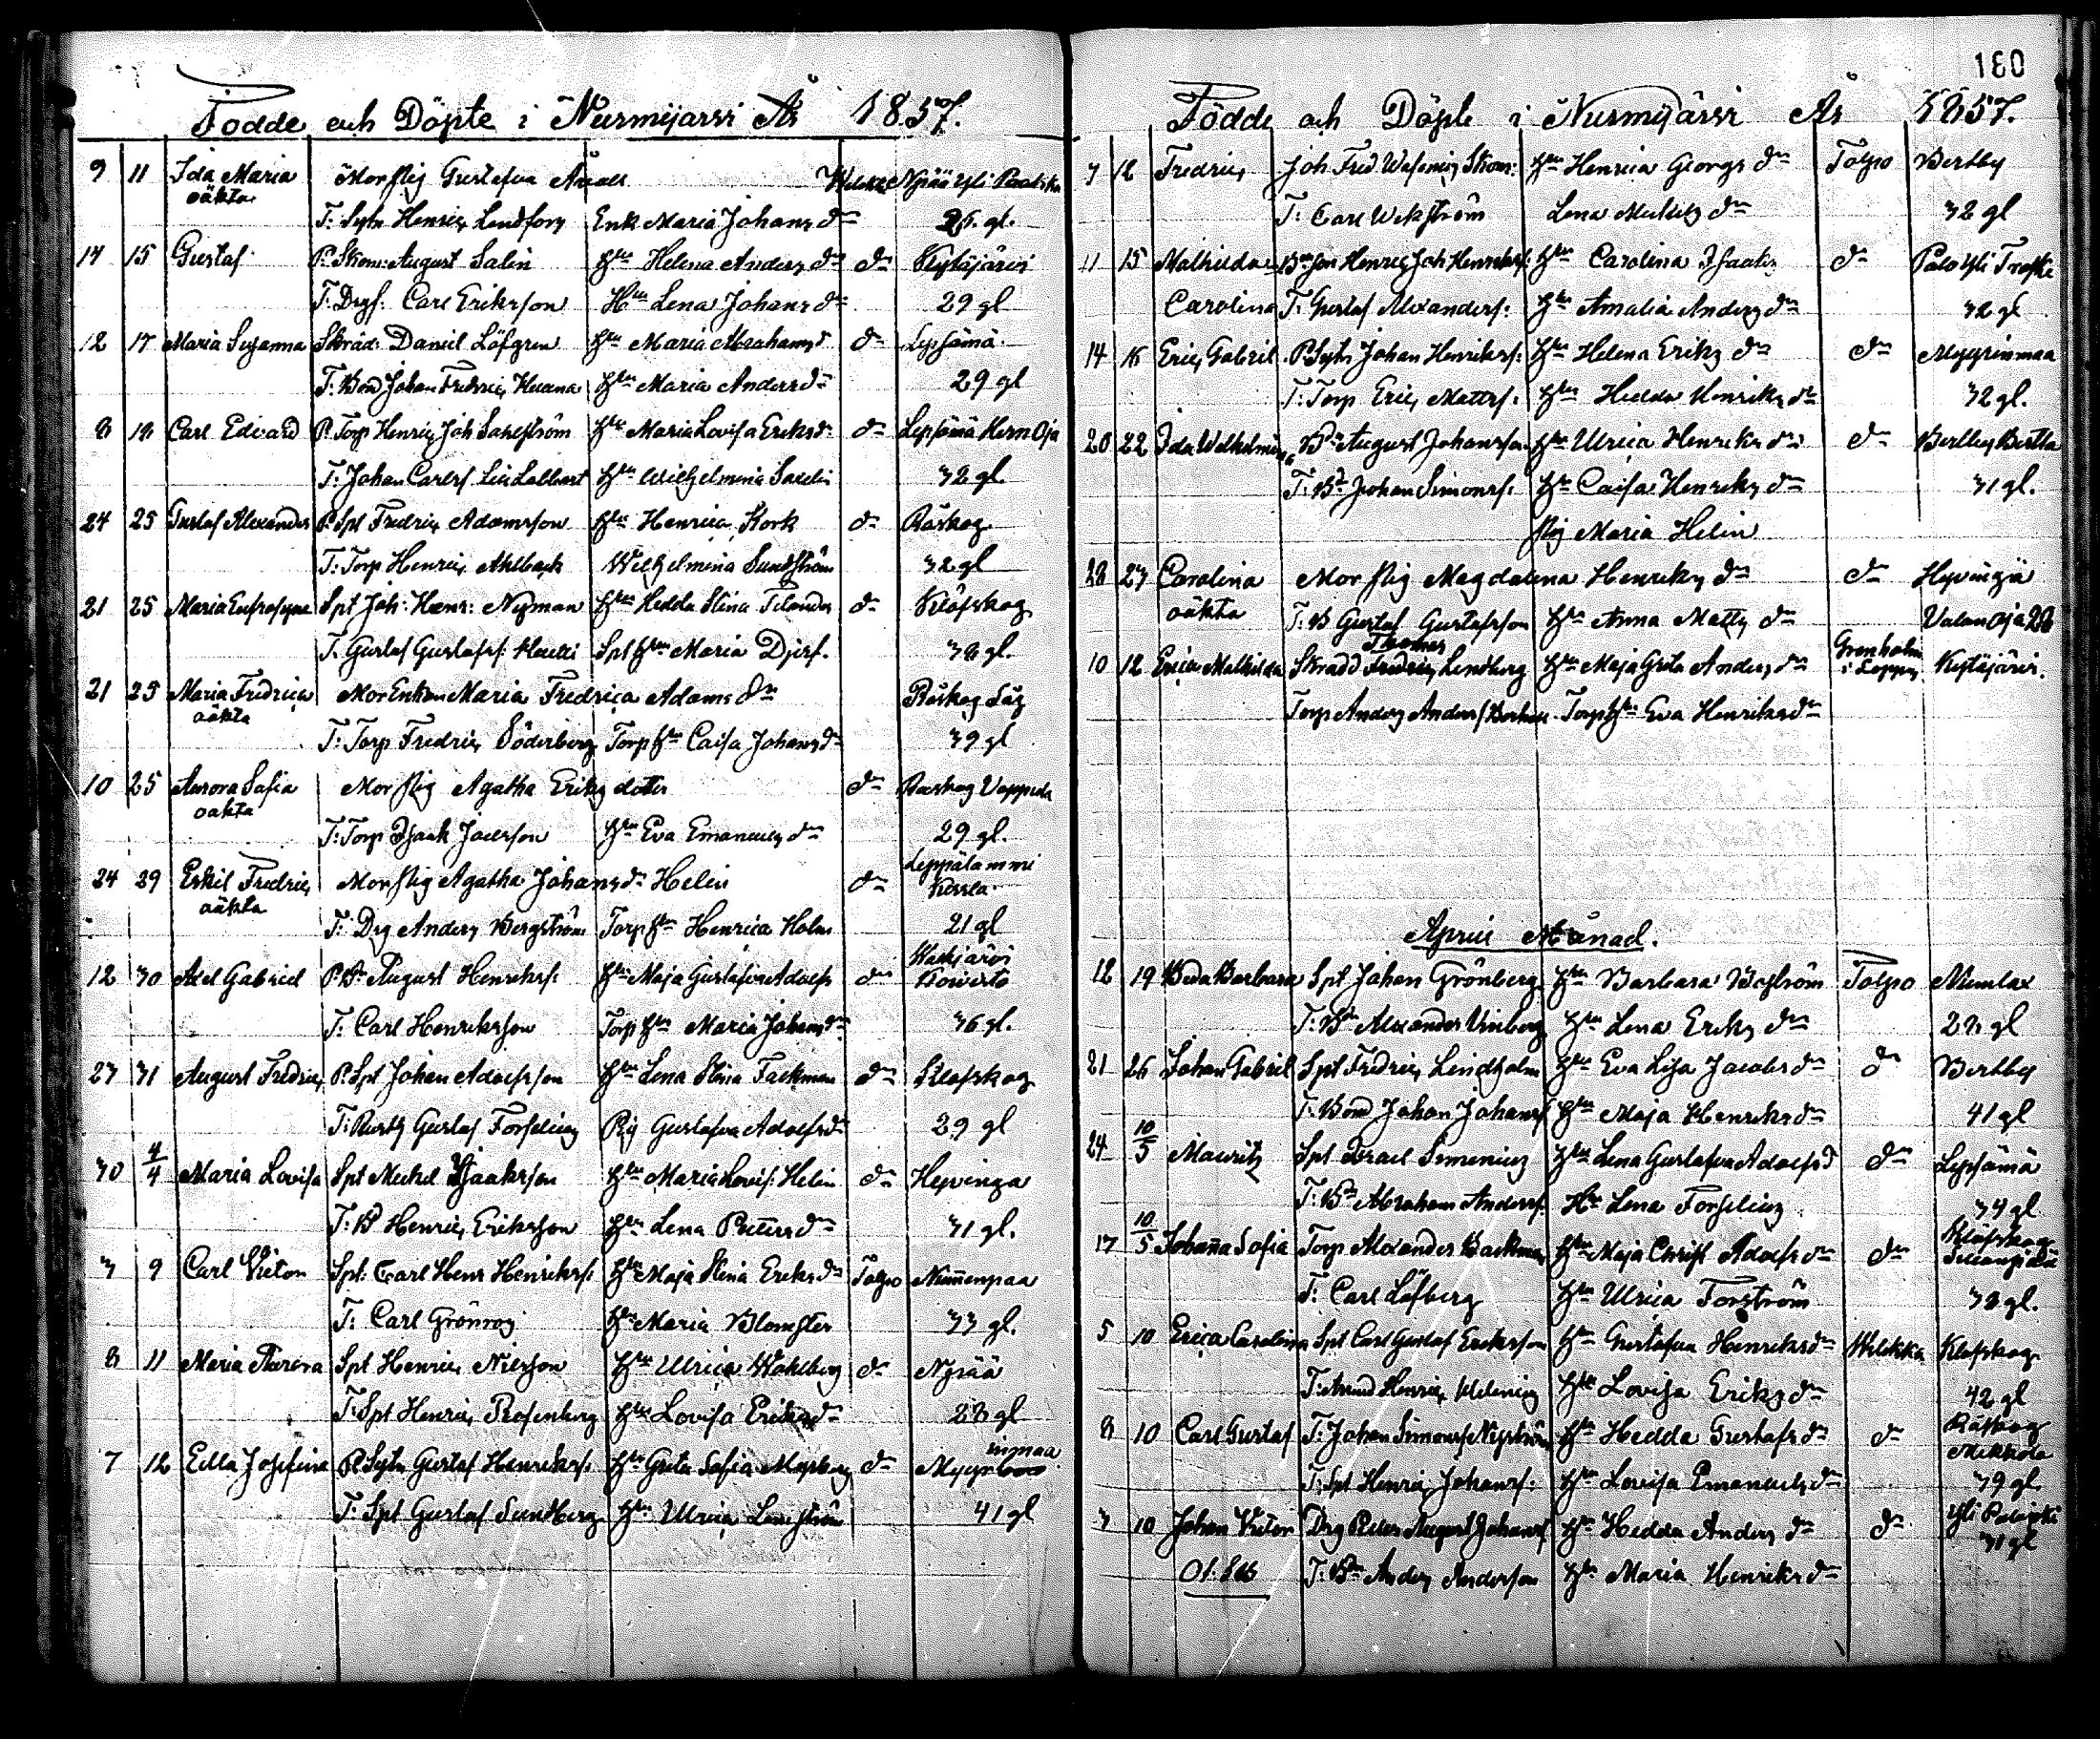 Födde och Döpte i Nurmijärvi År 1857.
9 11 Ida Maria Mor Pig Gustafva Welikka Ngrää Yli
oäkta
T: Sytn Henric Lindfors Enk Maria Johans dr 25 gl.
14 15 Gustaf P. Skom: August Salin Hu Helena Anders dr dn Kytäjärvi
T. Drgs: Carl Eriksson Hu Lena Johans dr 29 gl
12 17 Maria Susanna Skräd: Daniel Löfgren Hu Maria Abrahams d dn Lepsämä
T: Bond Johan Fredric Huana Hu Maria Anders dr 29 gl
8 18 Carl Edvard P. Torp Henric Joh Sahlström Hu Maria Lovisa Eriks dr dn Lepsämä Hern Oja
T: Johan Carls Hu Wilhelmina 32 gl.
24 25 Gustaf Alexander P. Spt Fredric Adamsson Hu Henrica Kork dn Råskog
T: Torp Henric Ahlbäck Wilhelmina Sundström 32 gl
21 25 Maria Eufrosyne Spt Joh: Henr: Nyman Hu Hedda Stina Tilander dn Klöfskog
T. Gustaf Gustafss: Spt Hu Maria 38 gl.
21 25 Maria Fredrica Mor Enkan Maria Fredrica Adams dr Råskog
oäkta
T: Torp Fredric Söderberg Torp Hu Caisa Johans dr 39 gl
10 25 Aurora Sofia Mor Pig Agatha Eriks dotter dn Råskog
oäkta
T: Torp Isaak Jacksson Hu Eva Emanuels dr 29 gl.
24 29 Eskil Fredric Mor Pig Agatha Johans dr Helin dn Leppälammi
oäkta
T: Drg Anders Bergström Torp Hu Henrica Holm 21 gl
12 30 Axel Gabriel P. Bn August Henrikss: Hu Maja Gustafva Adolfs dn Waskjärvi
T: Carl Henriksson Torp Hu Maria Johans dr 36 gl.
27 31 August Fredric P. Spt Johan Adolfsson Hu Lena Stina Tackman dn Klöfskog
T: Gustaf Forselius Pig Gustafva Adolfs dr 29 gl
30 4/4 Maria Lovisa Spt Mickel Isaaksson Hu Maria Lovis: Helin dn Hyvinga
T: B Henric Eriksson Hu Lena Petters dr 31 gl.
3 9 Carl Victor Spt: Carl Henr Henrikss: Hu Maja Stina Eriks dr Tolpo Nummenpaa
T: Carl Grönros Hu Maria Blomster 33 gl.
8 11 Maria Aurora Spt Henric Nilsson Hu Ulrica Wahlberg dn Ngrää
T: Spt Henric Rosenberg Hu Lovisa Eriks dr 28 gl
7 12 Edla Josefina P. Sytn Gustaf Henrikss: Hu Greta Sofia Myrberg dn
T. Spt Gustaf Sundberg Hu Ulrica Lindström 41 gl
180
Födde och Döpte i Nurmijärvi År 1857.
7 12 Fredric Joh Fred Wasenius Skom: Hu Henrica Georgs dr Tolpo Bertby
T: Carl Wekström Lena Mickels dr 32 gl
11 15 Mathilda Bn son Henric Joh Henrikss: Hu Carolina Isaaks dn Palo Yli
Carolina T: Gustaf Alexanders: Hu Amalia Anders dr 32 gl
14 16 Eric Gabriel P. Sytn Johan Henrikss: Hu Helena Eriks dr dn Myyrinmaa
T: Torp Eric Matts: Hu Hedda Henriks dr 32 gl.
20 22 Ida Wilhelmina Bn August Johansson Hu Ulrica Henriks dr dn Bertby Bertta
T: Bd Johan Simonss: Hu Caisa Henriks dr 31 gl.
Pig Maria Helin
22 23 Carolina Mor Pig Magdalena Henriks dr dn Hyvinga
oäkta T: B Gustaf Gustafsson Hu Anna Matts dr Valan Oja 28
10 12 Erica Mathilda Skrädd Thomas Lindberg Hu Maja Greta Anders dr Grenholm i Loppis Kytäjärvi.
Torp Anders Anderss Torp Hu Eva Henriks dr
April Månad.
12 19 Beda Barbara Spt Johan Grönberg Hu Barbara Boström Tolpo Numlax
T: Bn Alexander Vinberg Hu Lena Eriks dr 28 gl
21 26 Johan Gabriel Spt Fredric Lindholm Hu Eva Lisa Jacobs dr dn Bertby
T: Bond Johan Johanss Hu Maja Henriks dr 41 gl
24 10/5 Mauritz Spt Israel Simenius Hu Lena Gustafva Adolfs d dn Lepsämä
T: Bn Abraham Anderss: Hu Lena Forselius 34 gl
17 10/5 Johanna Sofia Torp Alexander Backman Hu Maja Christ Adolfs dr dn Klöfskog
T: Carl Löfberg Hu Ulrica Forström 38 gl.
5 10 Erica Carolina Spt Carl Gustaf Eriksson Hu Gustafva Henriks dr Welikka Klöfskog
T: Henric Helenius Hu Lovisa Eriks dr 42 gl
8 10 Carl Gustaf T. Johan Simonss Nyström Hu Hedda Gustafs dr dn Råskog Mikkola
T: Spt Henric Johanss: Hu Lovisa Emanuels dr 39 gl.
3 10 Johan Victor Drg Petter August Johanss Hu Hedda Anders dr dn Yli
T: Bn Anders Andersson Hu Maria Henriks dr 31 gl